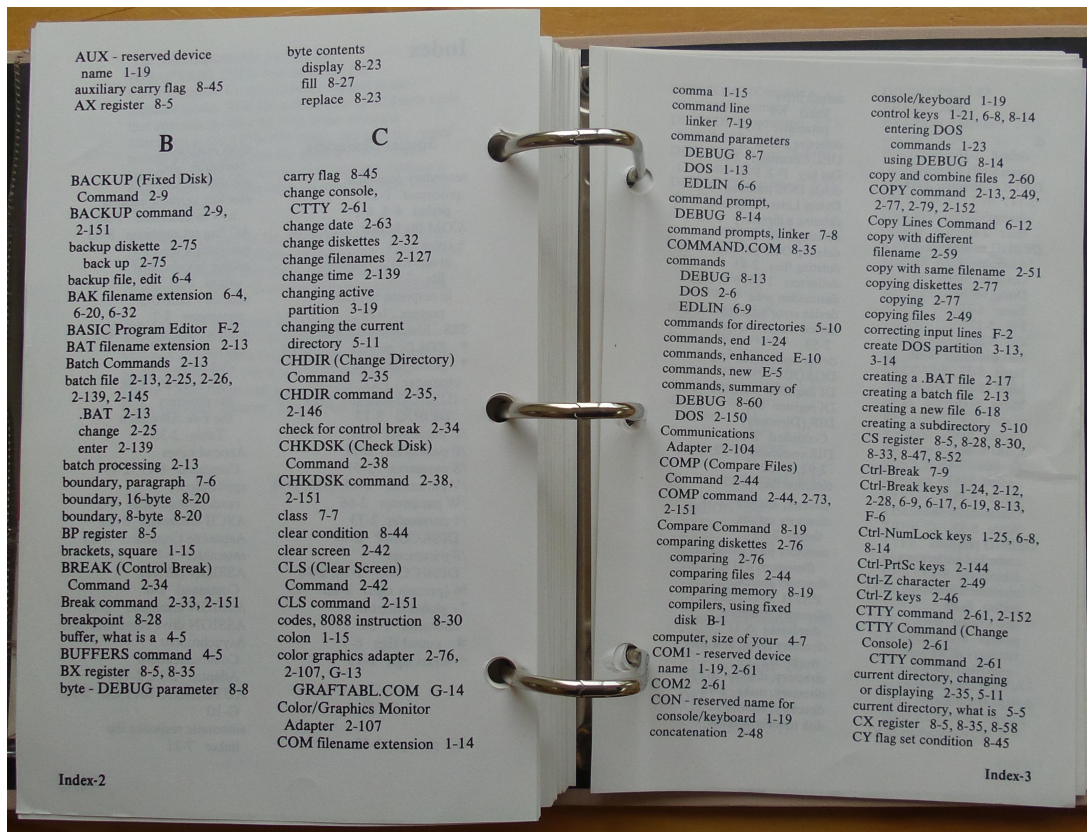 AUX - reserved device
name 1-19
auxiliary carry flag 8-45
AX register 8-5
B
BACKUP (Fixed Disk)
Command 2-9
BACKUP command 2-9,
2-151
backup diskette 2-75
back up 2-75
backup file, edit 6-4
BAK filename extension 6-4,
6-20, 6-32
BASIC Program Editor F-2
BAT filename extension 2-13
Batch Commands 2-13
batch file 2-13, 2-25, 2-26,
2-139, 2-145
.BAT 2-13
change 2-25
enter 2-139
batch processing 2-13
boundary, paragraph 7-6
boundary, 16-byte 8-20
boundary, 8-byte 8-20
BP register 8-5
brackets, square 1-15
BREAK (Control Break)
Command 2-34
Break command 2-33, 2-151
breakpoint 8-28
buffer, what is a 4-5
BUFFERS command 4-5
BX register 8-5, 8-35
byte - DEBUG parameter 8-8
byte contents
display 8-23
fill 8-27
replace 8-23
C
carry flag 8-45
change console,
CTTY 2-61
change date 2-63
change diskettes 2-32
change filenames 2-127
change time 2-139
changing active
partition 3-19
changing the current
directory 5-11
CHDIR (Change Directory)
Command 2-35
CHDIR command 2-35,
2-146
check for control break 2-34
CHKDSK (Check Disk)
Command 2-38
CHKDSK command 2-38,
2-151
class 7-7
clear condition 8-44
clear screen 2-42
CLS (Clear Screen)
Command 2-42
CLS command 2-151
codes, 8088 instruction 8-30
colon 1-15
color graphics adapter 2-76,
2-107, G-13
GRAFTABL.COM G-14
Color/Graphics Monitor
Adapter 2-107
COM filename extension 1-14
Index-2
comma 1-15
command line
linker 7-19
command parameters
DEBUG 8-7
DOS 1-13
EDLIN 6-6
command prompt,
DEBUG 8-14
command prompts, linker 7-8
COMMAND.COM 8-35
commands
DEBUG 8-13
DOS 2-6
EDLIN 6-9
commands for directories 5-10
commands, end 1-24
commands, enhanced E-10
commands, new E-5
commands, summary of
DEBUG 8-60
DOS 2-150
Communications
Adapter 2-104
COMP (Compare Files)
Command 2-44
COMP command 2-44, 2-73,
2-151
Compare Command 8-19
comparing diskettes 2-76
comparing 2-76
comparing files 2-44
comparing memory 8-19
compilers, using fixed
disk B-1
computer, size of your 4-7
COM1 - reserved device
name 1-19, 2-61
COM2 2-61
CON - reserved name for
console/keyboard 1-19
concatenation 2-48
console/keyboard 1-19
control keys 1-21, 6-8, 8-14
entering DOS
commands 1-23
using DEBUG 8-14
copy and combine files 2-60
COPY command 2-13, 2-49,
2-77, 2-79, 2-152
Copy Lines Command 6-12
copy with different
filename 2-59
copy with same filename 2-51
copying diskettes 2-77
copying 2-77
copying files 2-49
correcting input lines F-2
create DOS partition 3-13,
3-14
creating a .BAT file 2-17
creating a batch file 2-13
creating a new file 6-18
creating a subdirectory 5-10
CS register 8-5, 8-28, 8-30,
8-33, 8-47, 8-52
Ctrl-Break 7-9
Ctrl-Break keys 1-24, 2-12,
2-28, 6-9, 6-17, 6-19, 8-13,
F-6
Ctrl-NumLock keys 1-25, 6-8,
8-14
Ctrl-PrtSc keys 2-144
Ctrl-Z character 2-49
Ctrl-Z keys 2-46
CTTY command 2-61, 2-152
CTTY Command (Change
Console) 2-61
CTTY command 2-61
current directory, changing
or displaying 2-35, 5-11
current directory, what is 5-5
CX register 8-5, 8-35, 8-58
CY flag set condition 8-45
Index-3